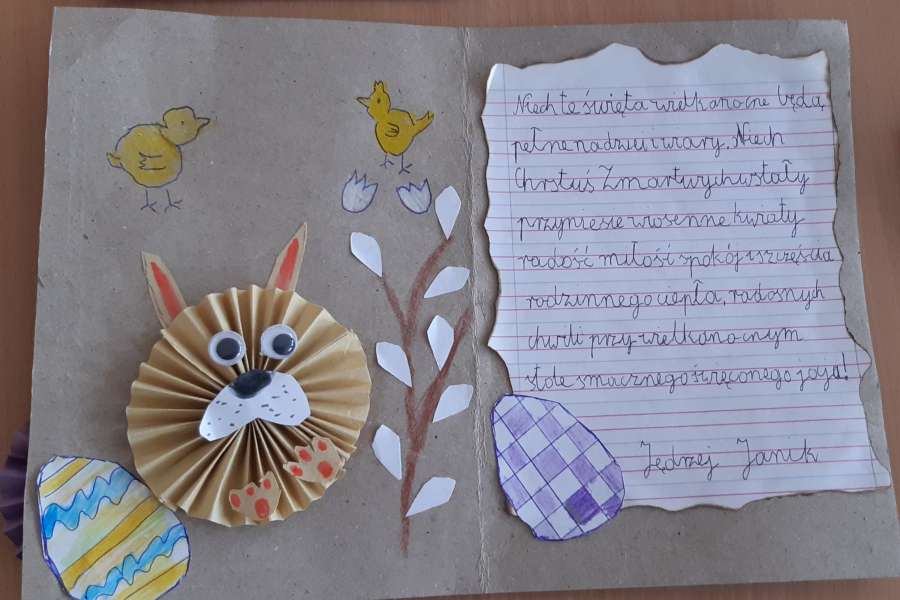 Niech te święta wielkanocne będą
pełne nadziei i wiary. Niech
Chrstuś Zmartwychwstały
przyniesie wiosenne kwiaty
radość miłość spokój i szczęścia
rodzinnego ciepła, radosnych
chwili przy wielkanocnym
stole smacznego święconego jaja!
Jędrzej Janik